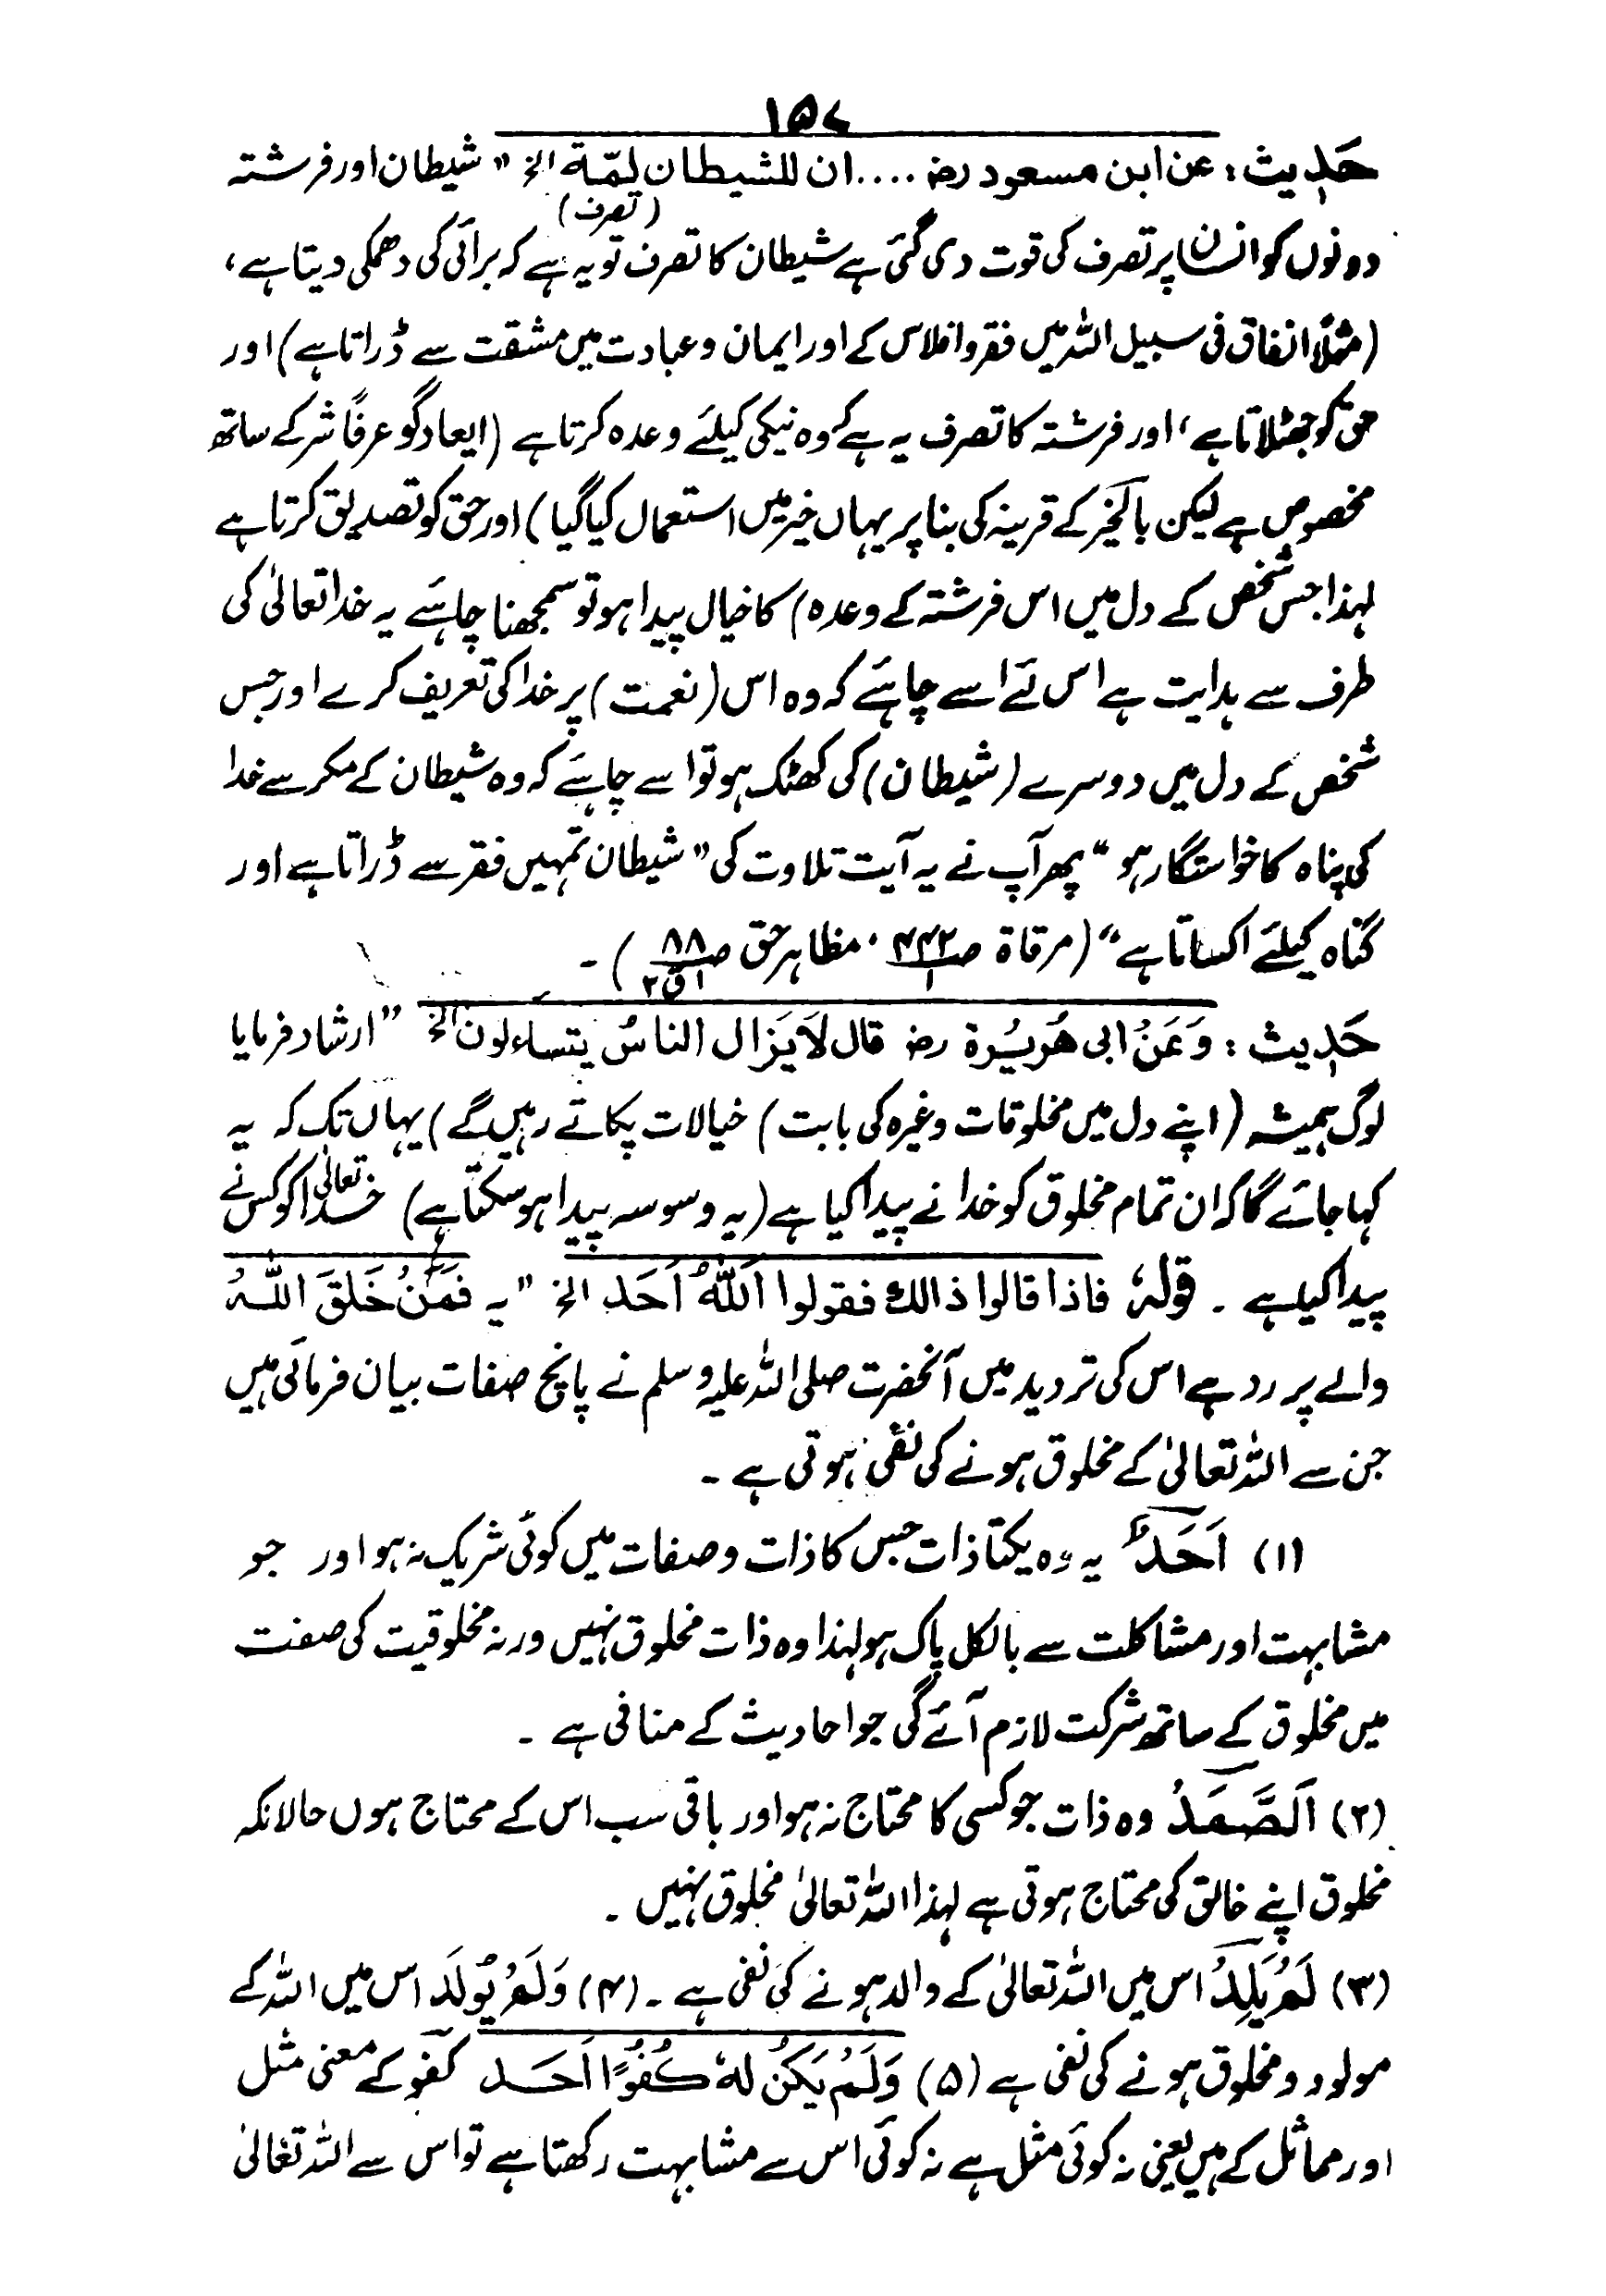 ۱۵۷
حَدِیث: عن ابن مسعود رض .... ان للشیطان لِمّة الخ ״ شیطان اور فرشتہ
(تصرف)
دونوں کو انسان پر تصرف کی قوت دی گئی ہے شیطان کا تصرف تو یہ ہے کہ برائی کی دھمکی دیتا ہے،
(مثلًا انفاق فی سبیل اللہ میں فقر و افلاس کے اور ایمان و عبادت میں مشقت سے ڈراتا ہے) اور
حق کو جھٹلاتا ہے، اور فرشتہ کا تصرف یہ ہے کہ وہ نیکی کیلئے وعدہ کرتا ہے (ایعاد گو عرفًا شر کے ساتھ
مخصوص ہے لیکن بالخیر کے قرینہ کی بنا پر یہاں خیر میں استعمال کیا گیا) اور حق کو تصدیق کرتا ہے
لہذا جس شخص کے دل میں اس فرشتہ کے وعدہ) کا خیال پیدا ہو تو سمجھنا چاہئے یہ خدا تعالیٰ کی
طرف سے ہدایت ہے اس لئے اسے چاہئے کہ وہ اس (نعمت) پر خدا کی تعریف کرے اور جس
شخص کے دل میں دوسرے (شیطان) کی کھٹک ہو تو اسے چاہئے کہ وہ شیطان کے مکر سے خدا
کی پناہ کا خواستگار ہو “ پھر آپ نے یہ آیت تلاوت کی ” شیطان تمہیں فقر سے ڈراتا ہے اور
گناہ کیلئے اکساتا ہے “ (مرقاۃ ص ۱۴۲/۱ ، مظاہر حق ص ۸۸/۱ ق ۲) ۔
حَدِیث: وَعَنْ ابی ھُرَیْرة رض قال لَا یَزَال الناسُ یتساءلون الخ ” ارشاد فرمایا
لوگ ہمیشہ (اپنے دل میں مخلوقات وغیرہ کی بابت) خیالات پکاتے رہیں گے) یہاں تک کہ یہ
کہا جائے گا کہ ان تمام مخلوق کو خدا نے پیدا کیا ہے (یہ وسوسہ پیدا ہو سکتا ہے) خدا تعالیٰ کو کس نے
پیدا کیا ہے ۔ قولہٗ فاذا قالوا ذالك فقولوا اَللّٰهُ اَحَد الخ ” یہ فَمَنْ خَلَقَ اللّٰهُ
والے پر رد ہے اس کی تردید میں آنحضرت صلی اللہ علیہ وسلم نے پانچ صفات بیان فرمائی ہیں
جن سے اللہ تعالیٰ کے مخلوق ہونے کی نفی ہوتی ہے ۔
(۱) اَحَدٌ یہ وہ یکتا ذات جس کا ذات و صفات میں کوئی شریک نہ ہو اور جو
مشابہت اور مشاکلت سے بالکل پاک ہو لہٰذا وہ ذات مخلوق نہیں ورنہ مخلوقیت کی صفت
میں مخلوق کے ساتھ شرکت لازم آئے گی جو احادیث کے منافی ہے ۔
(۲) اَلصَّمَدُ وہ ذات جو کسی کا محتاج نہ ہو اور باقی سب اس کے محتاج ہوں حالانکہ
مخلوق اپنے خالق کی محتاج ہوتی ہے لہذا اللہ تعالیٰ مخلوق نہیں ۔
(۳) لَمْ یَلِدْ اس میں اللہ تعالیٰ کے والد ہونے کی نفی ہے ۔ (۴) وَلَمْ یُولَد اس میں اللہ کے
مولود و مخلوق ہونے کی نفی ہے (۵) وَلَمْ یَکُنْ لَهٗ کُفُوًا اَحَد کفو کے معنی مثل
اور مماثل کے ہیں یعنی نہ کوئی مثل ہے نہ کوئی اس سے مشابہت رکھتا ہے تو اس سے اللہ تعالیٰ